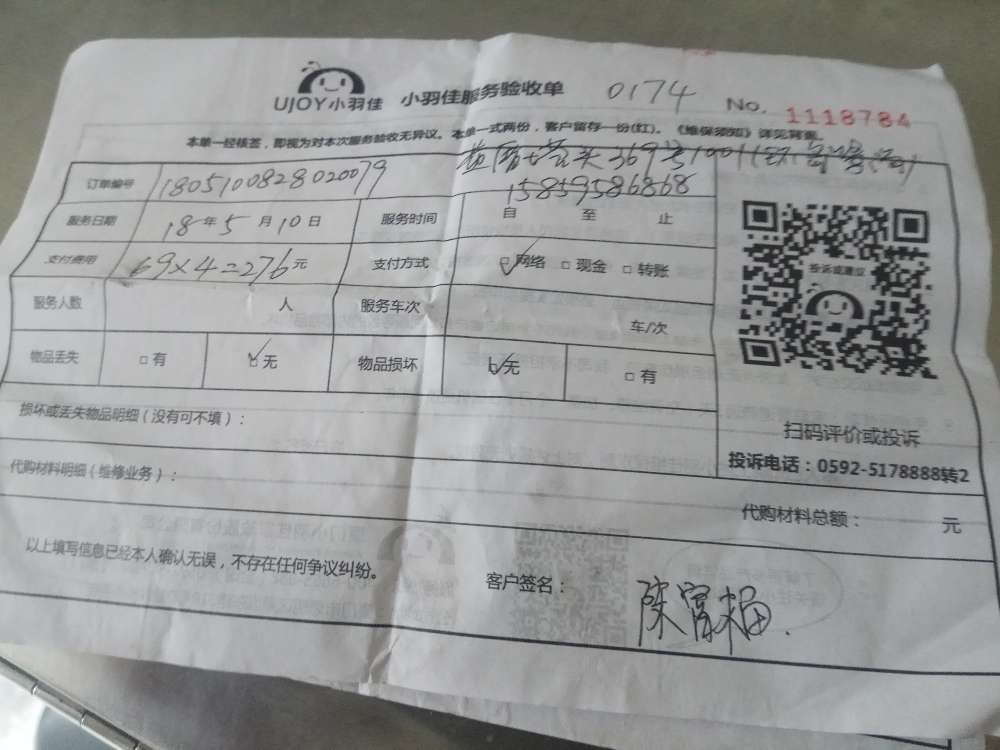 UJOY小羽佳 小羽佳服务验收单 0174 No. 1118784
本单一经核签，即视为对本次服务验收无异议。本单一式两份，客户留存一份(红)。《维保须知》详见背面。
369号1001
15859586868
订单编号 1805100828020079
服务日期 18年5月10日 服务时间 自 至 止
支付费用 69×4=276元 支付方式 □网络 □现金 □转账
投诉或建议
服务人数 人 服务车次 车/次
物品丢失 □有 □无 物品损坏 □无 □有
损坏或丢失物品明细（没有可不填）：
扫码评价或投诉
投诉电话：0592-5178888转2
代购材料明细（维修业务）：
代购材料总额： 元
以上填写信息已经本人确认无误，不存在任何争议纠纷。
客户签名： 陈富福